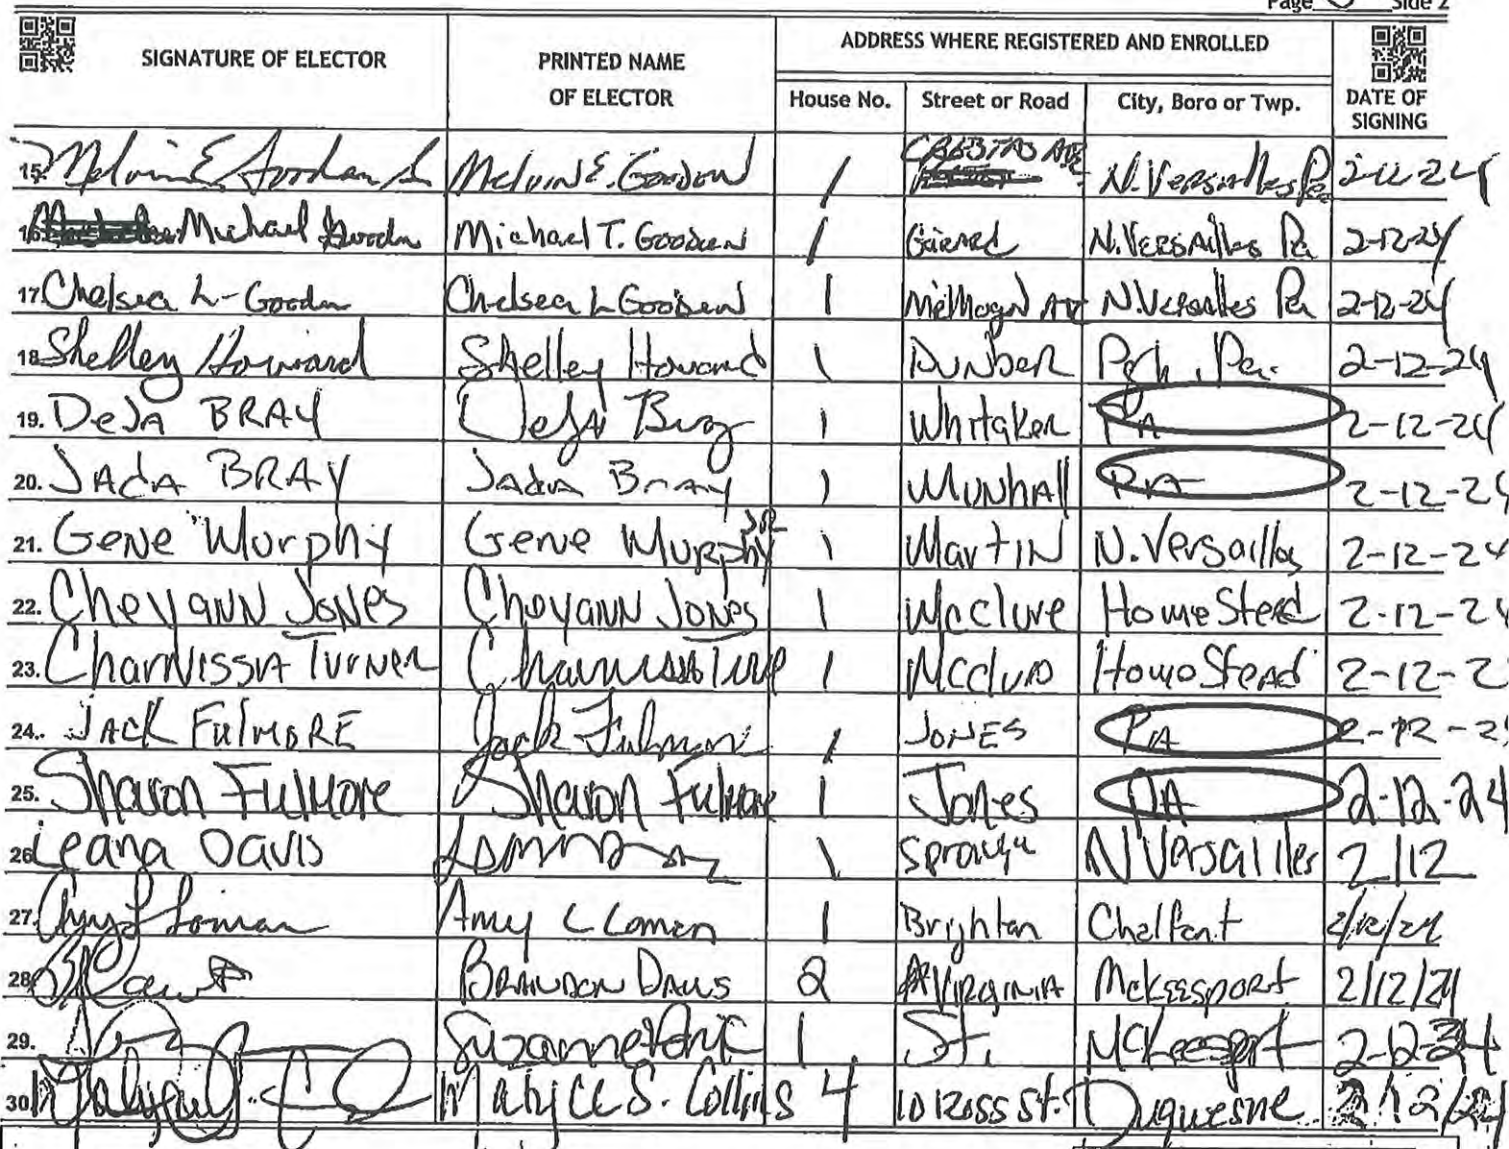 Page Side 2
SIGNATURE OF ELECTOR PRINTED NAME OF ELECTOR ADDRESS WHERE REGISTERED AND ENROLLED DATE OF SIGNING
House No. Street or Road City, Boro or Twp.
15. Melvin E. Melvin E. Gooden 1 N. Versailles Pa 2-12-24
16. Michael Gooden Michael T. Gooden 1 N. Versailles Pa 2-12-24
17. Chelsea L-Gooden Chelsea L Gooden 1 N. Versailles Pa 2-12-24
18. Shelley Howard Shelley Howard 1 Dunber Pgh, Pa. 2-12-24
19. DeJA BRAY DeJA Bray 1 Whitaker PA 2-12-24
20. JAdA BRAY Jada Bray 1 Munhall PA 2-12-24
21. Gene Murphy Gene Murphy JR 1 Martin N. Versailles 2-12-24
22. CheyANN JONes CheyANN JONes 1 McClure HomeStead 2-12-24
23. CharNissA Turner 1 HomeStead 2-12-2
24. JACK FulMORE Jack 1 JONES PA 2-12-2
25. Sharon Fulmore Sharon Fulmore 1 Jones PA 2-12-24
26. Leana Davis 1 N Versailles 2/12
27. Amy L Loman Amy L Loman 1 Brighton Chalfant 2/12/24
28. BRANDON DAVIS 2 VIRGINIA McKEESPORT 2/12/24
29. Suzanne 1 St. McKeesport 2-12-24
30. S. Collins 4 Duquesne 2/12/24